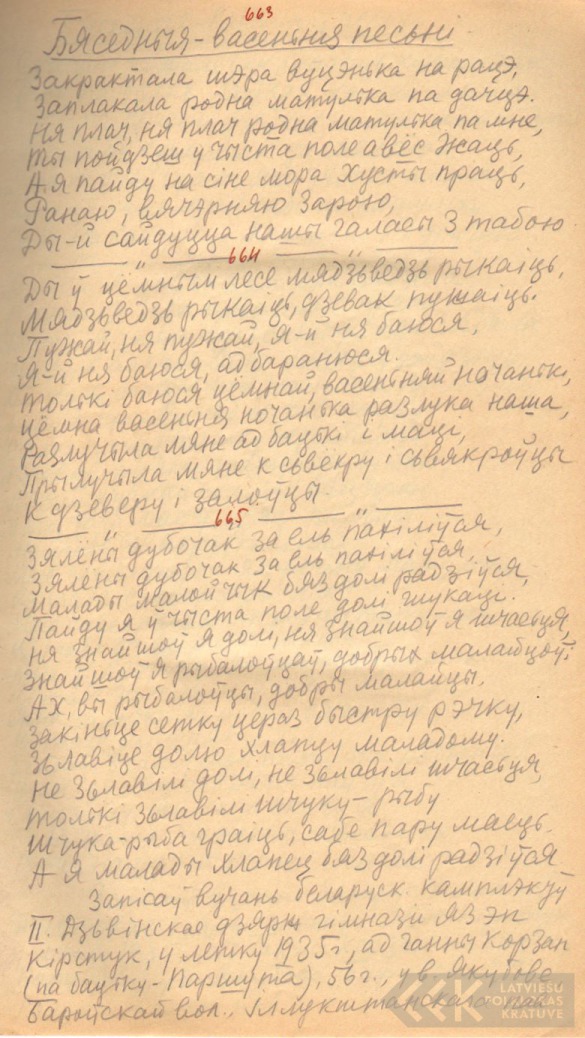 663
Бяседныя - васенныя песьні
Закрактала шэра вуцэнька на рацэ,
Заплакала родна матулька па дачцэ.
Ня плач, ня плач родна матулька па мне,
Ты пойдзеш у чыста поле авёс жаць,
А я пайду на сіне мора хусты праць,
Ранаю, вячэрняю зарою,
Ды-й сайдуцца нашы галасы з табою.
664
Ды ў цёмным лесе мядзьведзь рыкаіць,
Мядзьведзь рыкаіць, дзевак пужаіць.
Пужай, ня пужай, я-й ня баюся,
Я-й ня баюся, адбаранюся.
Толькі баюся цёмнай, васеньняй ночанькі,
Цёмна васеньня ночанька разлука наша,
Разлучыла мяне ад бацькі і маці,
Прылучыла мяне к сьвёкру і сьвякроўцы
К дзеверу і залоўцы.
665
Зялёны дубочак за ель пахіліўся,
Зялёны дубочак за ель пахіліўся,
Малады малойчык бяз долі радзіўся,
Пайду я ў чыста поле долі шукаць.
Ня знайшоў я долі, ня знайшоў я шчасьця,
Знайшоў я рыбалоўцаў, добрых малайцоў.
Ах, вы рыбалоўцы, добры малайцы,
Закіньце сетку цераз быстру рэчку,
Зьлавіце долю хлапцу маладому.
Не зьлавілі долі, не зьлавілі шчасьця,
Толькі зьлавілі шчуку-рыбу
Шчука-рыба граіць, сабе пару маець.
А я малады хлапец бяз долі радзіўся
Запісаў вучань беларуск. камплэкту
II. Дзьвінскае дзярж гімназіі Язэп
Кірстук, у летку 1935г, ад Ганны Корзан
(па бацьку - Паршута), 56г., у в. Якубове
Бароўскай вол., Іллукштанскага пав.
LATVIEŠU
FOLKLORAS
KRĀTUVE